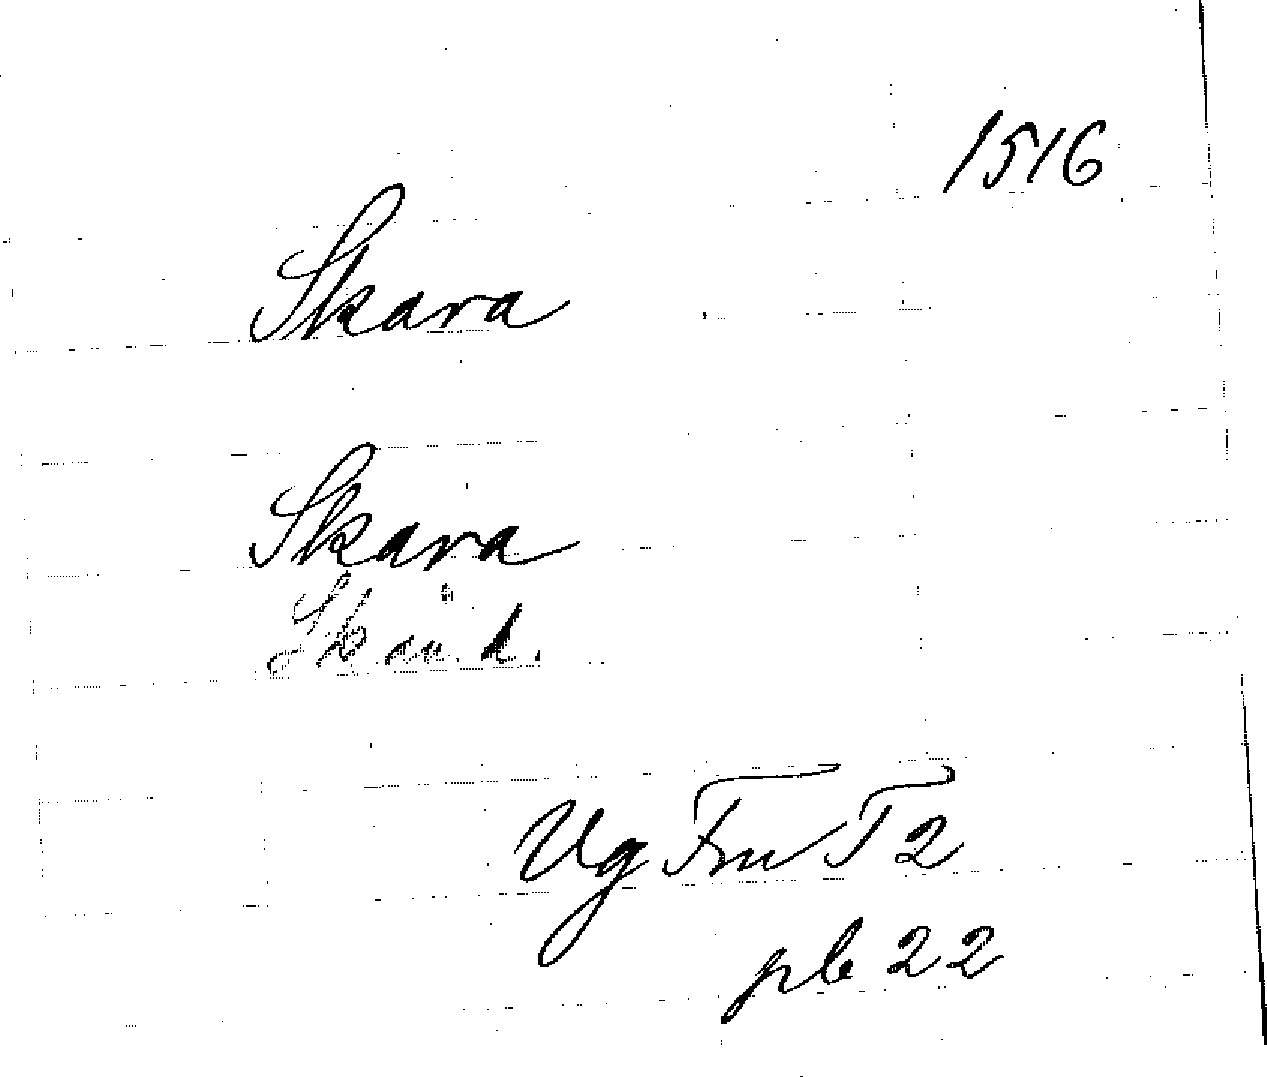 1516
Skara
Skara
Ug Fru T 2
pb 22